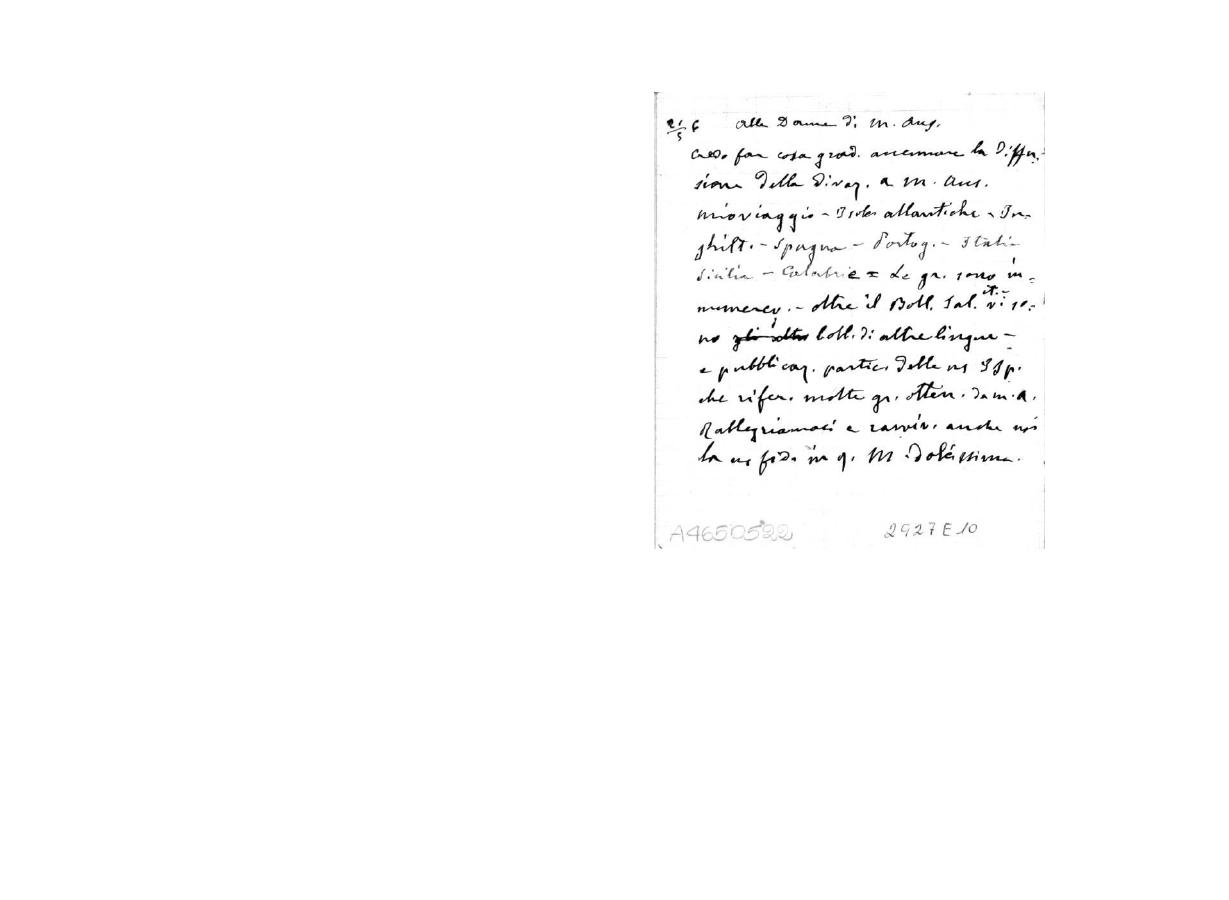 21/5 6 Alle Dame di M. Aus.
Credo far cosa grad. accennare la diffu-
sione della divoz. a M. Aus.
mio viaggio - Isole atlantiche - In-
ghilt. - Spagna - Portog. - Italia
Sicilia - Calabrie = Le gr. sono in-
numerev. - oltre il Boll. Sal. it. - vi so-
no gli altri boll. di altre lingue -
e pubblicaz. partic. delle ns Isp.
che rifer. molte gr. otten. da M. A.
Rallegriamoci e ravviv. anche noi
la ns fede in q. M. dolcissima.
A4650522 2927 E 10